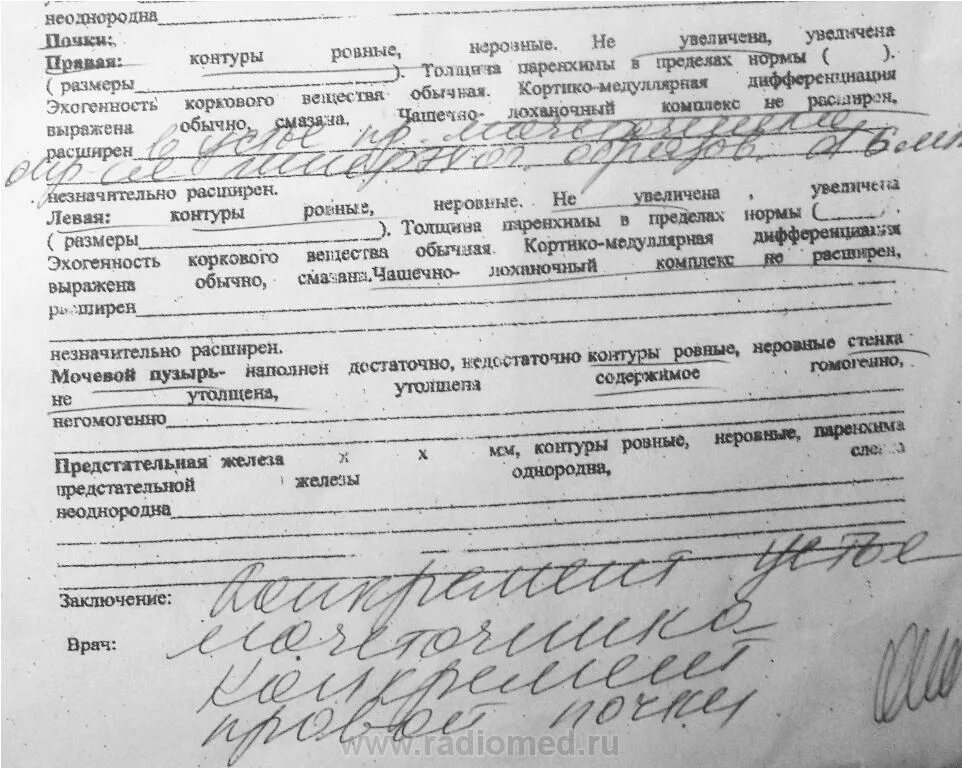 неоднородна
Почки:
Правая: контуры ровные, неровные. Не увеличена, увеличена
( размеры ). Толщина паренхимы в пределах нормы ( ).
Эхогенность коркового вещества обычная. Кортико-медуллярная дифференциация
выражена обычно, смазана. Чашечно- лоханочный комплекс не расширен,
расширен в устье пр. мочеточника
образов. d 6 мм
незначительно расширен.
Левая: контуры ровные, неровные. Не увеличена , увеличена
( размеры ). Толщина паренхимы в пределах нормы ( ).
Эхогенность коркового вещества обычная. Кортико-медуллярная дифференциация
выражена обычно, смазана.Чашечно- лоханочный комплекс не расширен,
расширен
незначительно расширен.
Мочевой пузырь- наполнен достаточно, недостаточно контуры ровные, неровные стенка
не утолщена, утолщена содержимое гомогенно,
негомогенно
Предстательная железа х х мм, контуры ровные, неровные, паренхима
предстательной железы однородна, слегка
неоднородна
Заключение: Конкремент устье
Врач: мочеточника
Конкремент
правой почки
www.radiomed.ru